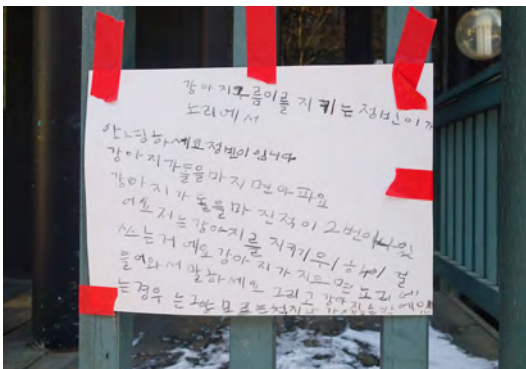 강아지구름이를 지키는 정빈이가
노리에서
안녕하세요 정빈이 입니다
강아지가 돌을 마지면 아파요
강아지가 돌을 마 진적이 2번이나 있
어요 저는 강아지를 지키기 우해 이 걸
쓰는거 에요 강아지가 지으면 노리에
들어와서 말하세요 그리고 강아지
는경우 는 그냥 모르는척